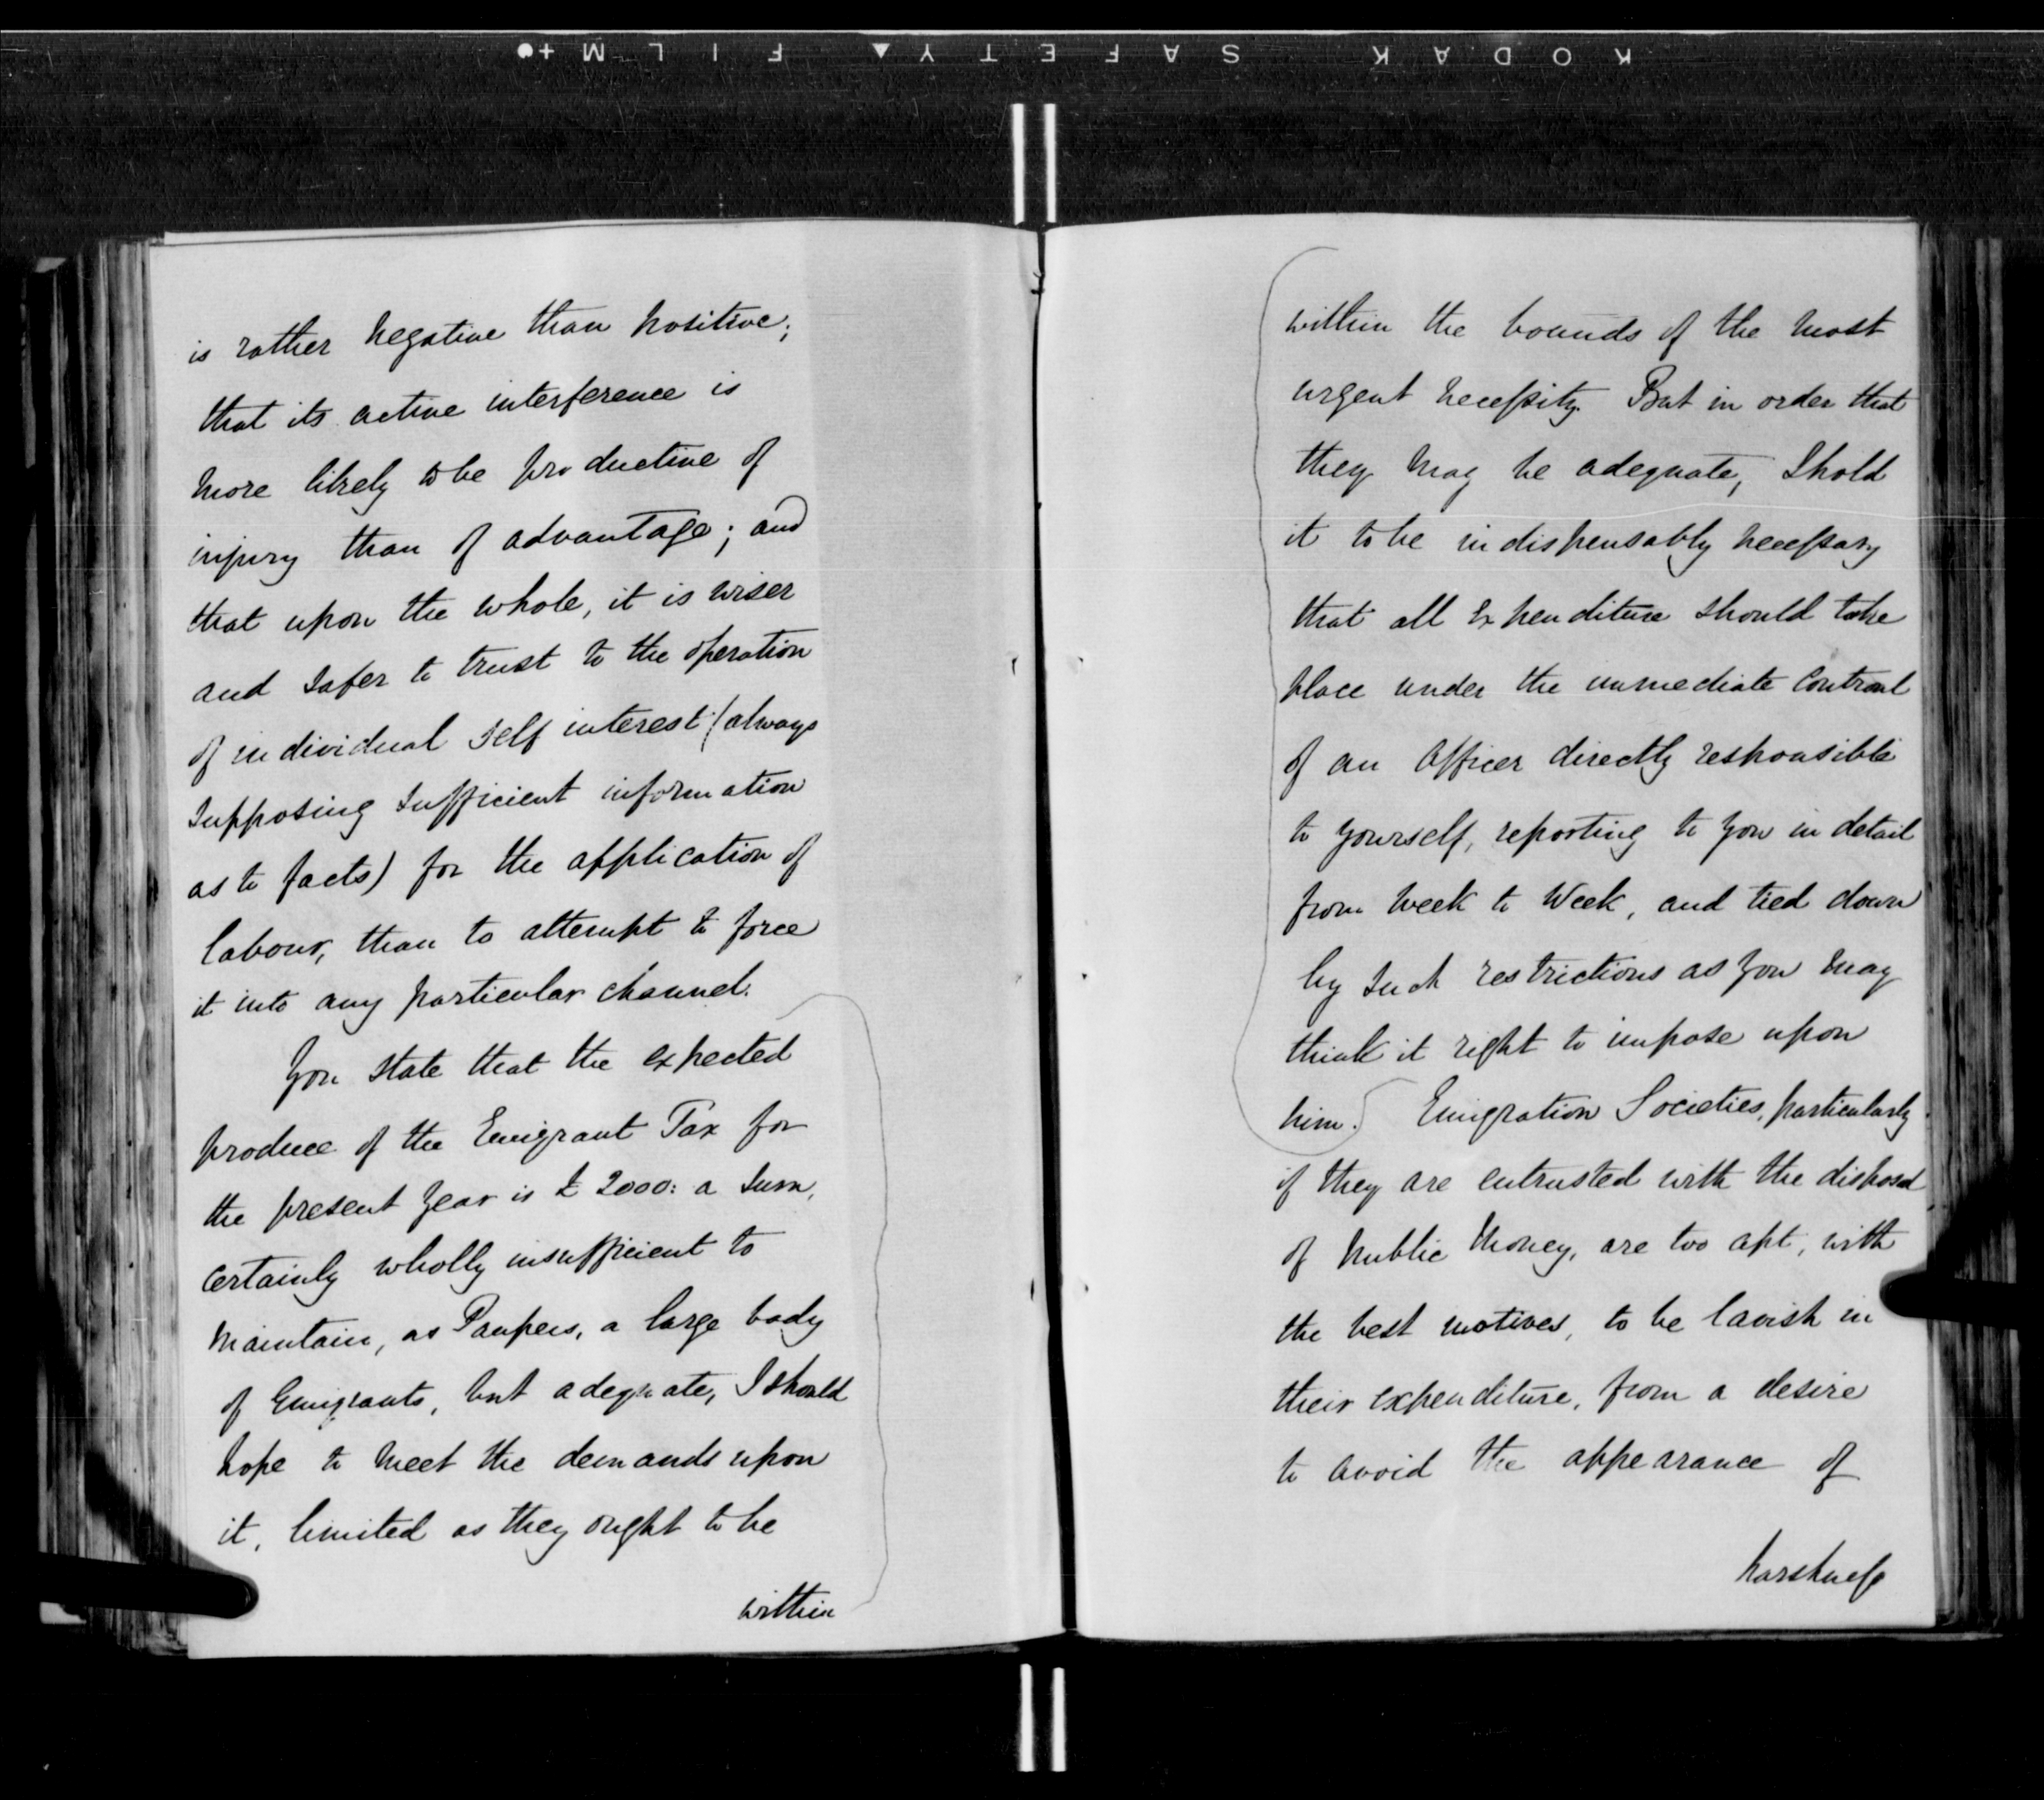 KODAK SAFETY▲ FILM +●
is rather negative than positive;
that its active interference is
more likely to be productive of
injury than of advantage; and
that upon the whole, it is wiser
and safer to trust to the operation
of individual self interest (always
supposing sufficient information
as to facts) for the application of
labour, than to attempt to force
it into any particular channel.
You state that the expected
produce of the Emigrant Tax for
the present year is £2000: a sum,
certainly wholly insufficient to
maintain, as Paupers, a large body
of Emigrants, but adequate, I should
hope to meet the demands upon
it, limited as they ought to be
within
within the bounds of the most
urgent necessity. But in order that
they may be adequate, I hold
it to be indispensably necessary
that all Expenditure should take
place under the immediate Controul
of an Officer directly responsible
to yourself, reporting to you in detail
from week to Week, and tied down
by such restrictions as you may
think it right to impose upon
him.) Emigration Societies, particularly
if they are entrusted with the disposal
of public Money, are too apt, with
the best motives, to be lavish in
their expenditure, from a desire
to avoid the appearance of
harshness